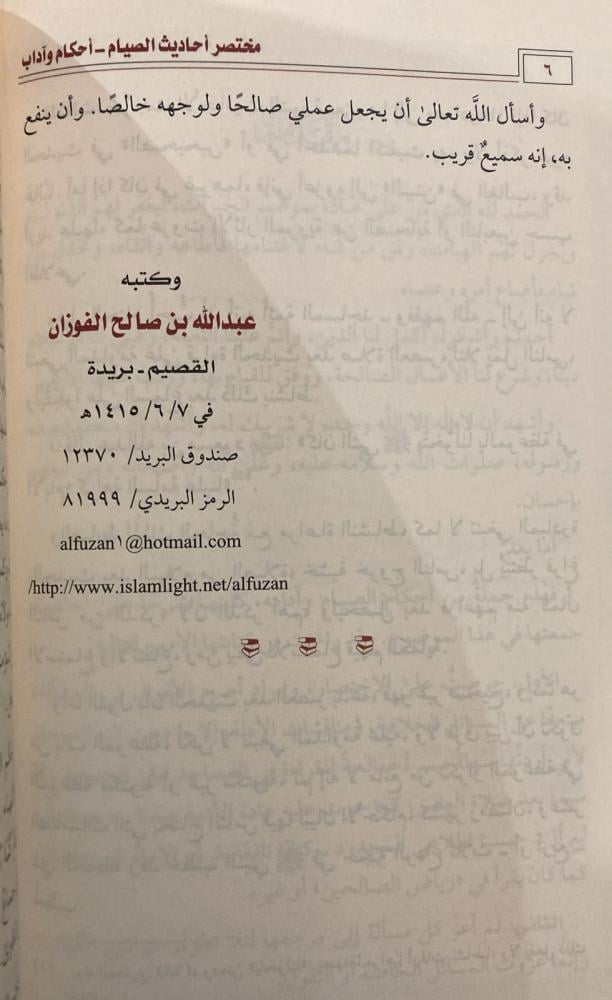 مختصر أحاديث الصيام - أحكام وآداب
٦
وأسأل اللَّه تعالىٰ أن يجعل عملي صالحًا ولوجهه خالصًا. وأن ينفع
به، إنه سميعٌ قريب.
وكتبه
عبدالله بن صالح الفوزان
القصيم - بريدة
في ٧/ ٦/ ١٤١٥هـ
صندوق البريد/ ١٢٣٧٠
الرمز البريدي/ ٨١٩٩٩
alfuzan١@hotmail.com
/http://www.islamlight.net/alfuzan